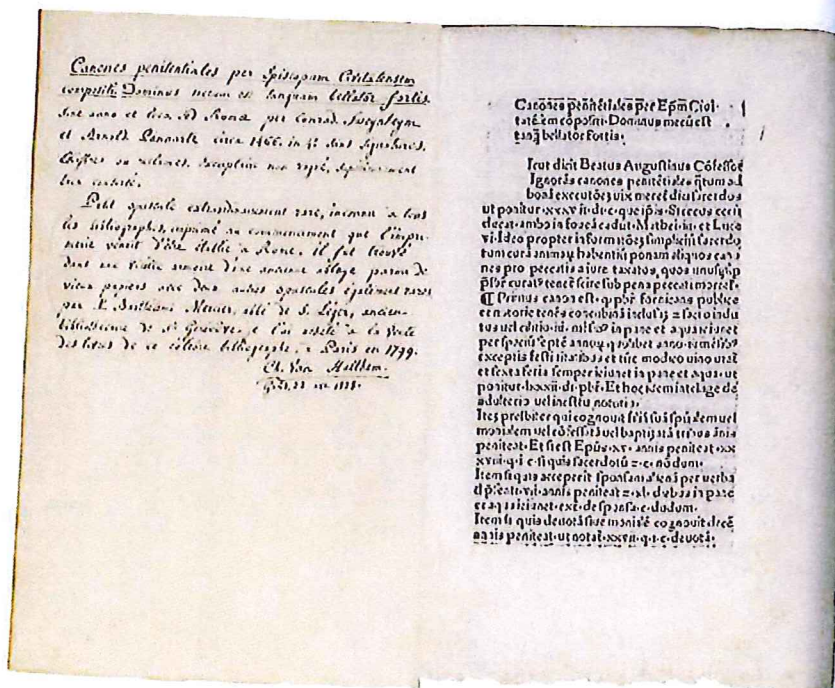 Canones penitentiales per Episcopum Civitatensem
compositi. Dominus mecum est tanquam bellator fortis.
sine anno et loco. sed Romæ per Conrad. Sweynheym
et Arnold. Pannartz circa 1466. in 4º. sans signatures,
chiffres ou réclames. Exemplaire non rogné,
bien conservé.
Petit opuscule extraordinairement rare, inconnu à tous
les bibliographes, imprimé au commencement que l'impri-
merie venoit d'être établie à Rome. il fut trouvé
dans une vieille armoire d'une ancienne abbaye parmi de
vieux papiers avec deux autres opuscules également rares
par M. Barthelemi Mercier, abbé de S. Léger, ancien
bibliothécaire de Ste Geneviève, je l'ai acheté à la vente
des livres de ce célèbre bibliographe, à Paris en 1799.
Ch. Van Hulthem.
Canōnes penitētiales per Epm̄ Ciui
tatēsem cōpositi. Dominus mecū est
tanq̄ bellator fortis.
Icut dicit Beatus Augustinus
Ignorās canones penitētiales q̄tum ad
boas executōes uix meret̄ dici sacerdos
ut ponitur xxxvii. di. c. que ipsis. Si cecus cecū
ducat ambo in foueā cadūt. Mathei. xv. et Luce
vi. Ideo propter informatōes simpliciū sacerdo
tum curā animaꝝ habentiū ponam aliquos cano
nes pro peccatis a iure taxatos, quos unusq̄sq̄
pn̄br curat9 tenet̄ scire sub pena peccati mortal̓.
¶ Primus canon est. q̄ pbr̄ fornicans publice
et notorie
per spaciū septē annoꝝ
exceptis festiuitatibus et tūc modico uino utat̄
et sexta feria semper ieiunet in pane et aqua. ut
ponitur lxxxii. di. pbr̄. Et hoc idem intellige de
adulterio uel incestu notorio.
Itē presbiter qui cognouit filiā suā spūalem uel
monialem uel cōfessatā uel baptizatā
peniteat. Et si est Epūs. xv. annis peniteat. xx
xvii. q. i. c. si quis sacerdotū
Item si quis acceperit sponsam alienā per uerba
d̓ pn̄ti. vii. annis peniteat
et aqua ieiunet. ext̄. de sponsa. c. dudum.
Item si quis deuotā siue moniālē cognouit. decē
annis peniteat. ut notat̄. xxvii. q. i. c. deuotā.